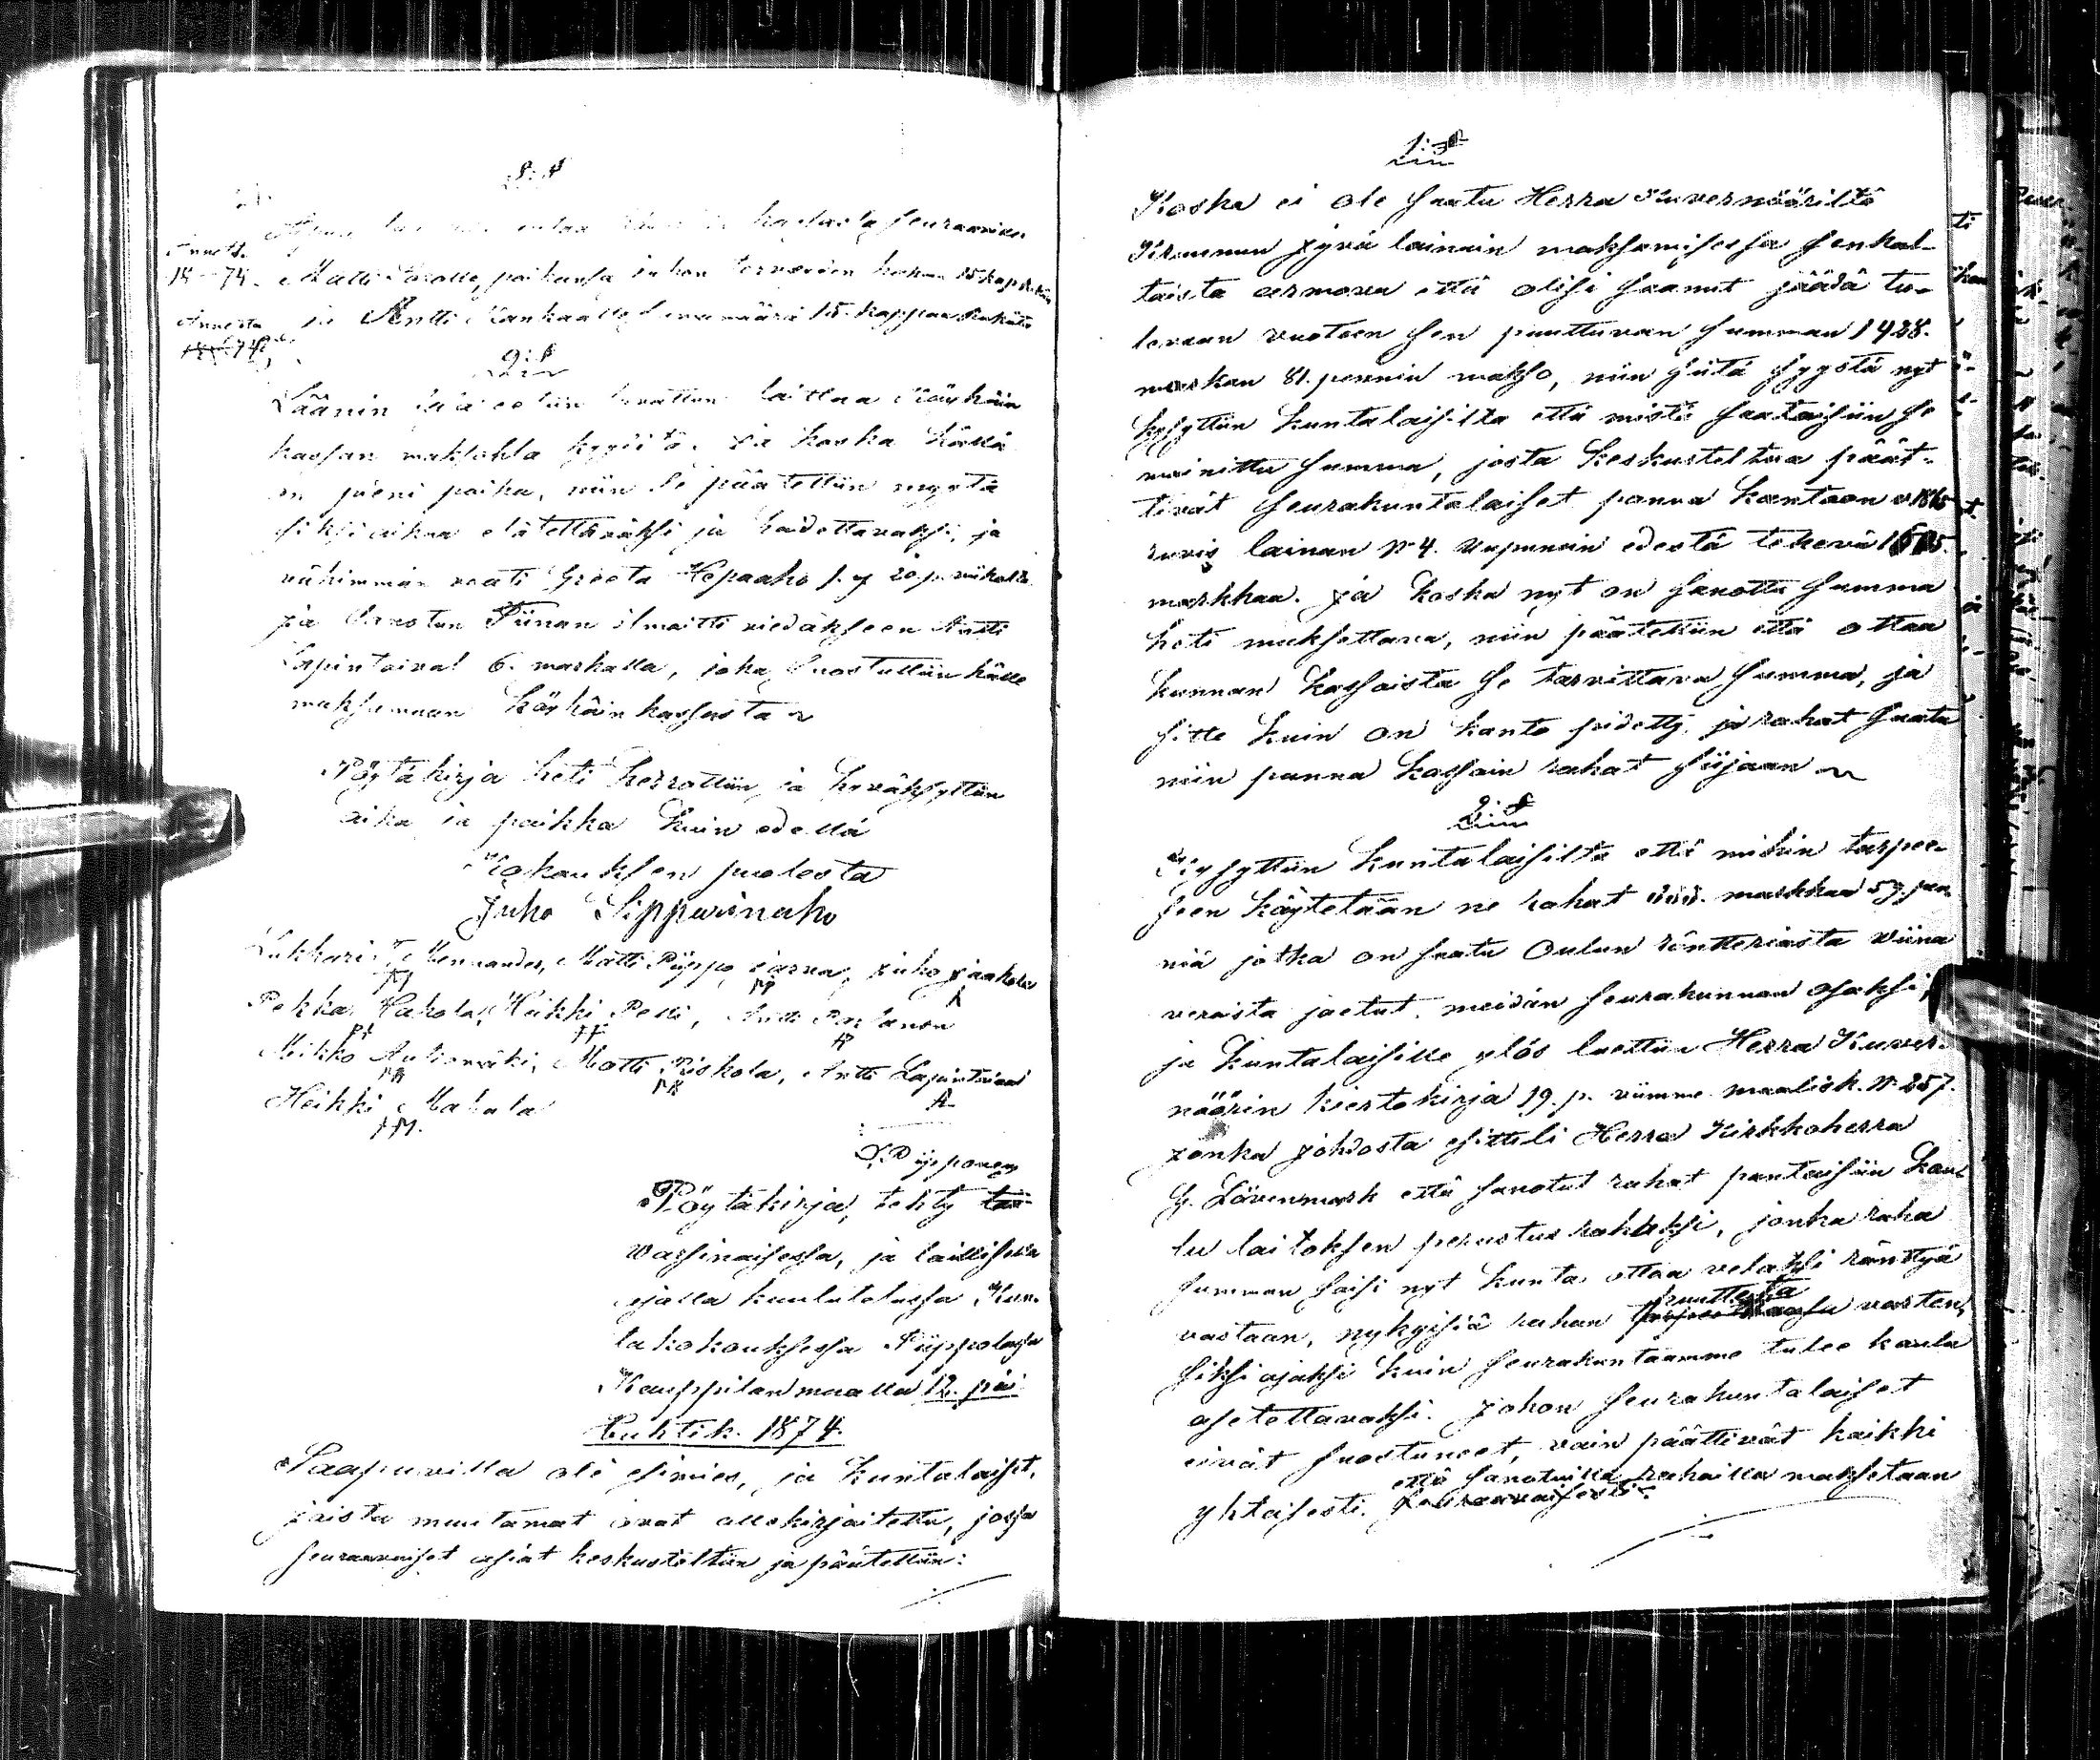 8: §
hassasta seuraavien
Annettu
18 74. Matti
Annettu ja Antti Kankaalle sama määrä 15. kappaa
9: §
Läänin laittaa Köyhäin
kassan maksolla kyytitä. ja koska
on pieni poika, niin se päätettiin myytä
siksi aikaa elätettäväksi ja hoidettavaksi, ja
vähimmän vaati Greeta Hepoaho
ja Tiinan ilmaitti viedäkseen Antti
Lapintaival 6. markalla, joka Suostuttiin hälle
maksamaan köyhäin kassasta
Pöytäkirja heti kerrottiin ja hyväksyttiin
aika ja paikka kuin edellä
Kokouksen puolesta
Juho Lippurinaho
Lukkari Mennander, Matti Piippo, Juho Jaakola
Pekka Hakola, Heikki Pelli, Antti
Mikko Autiomäki, Matti Piskola, Antti Lapintaival
Heikki Makola
HM.
Piipponen
Pöytäkirja, tehty
Varsinaisessa, ja laillisella
ajalla kuulutetussa Kun-
takokouksessa Piippolassa
Kauppilan maalla 12. pä
Huhtik. 1874.
Saapuvilla oli esimies, ja kuntalaiset,
joista muutamat ovat allekirjoitettu, jossa
seuraavaiset asiat keskusteltiin ja päätettiin:
1: §
Koska ei ole saatu Herra Kuvernööriltä
Kruunun jyvä lainain maksamisessa senkal-
taista armova että olisi saanut jäädä tu-
levaan vuoteen sen puuttuvan summan 1428.
markan 81. pennin makso, niin siitä syystä nyt
kysyttiin kuntalaisilta että mistä saataisiin se
mainittu summa, josta keskusteltua päät-
tivät seurakuntalaiset panna kantoon v. 1865
ruvis lainan N 4. edestä tekevä
markkaa. ja koska nyt on sanottu summa
heti maksettava, niin päätettiin että ottaa
kunnan kassaista se tarvittava summa, ja
sitte kuin on kanto pidetty, ja rahat saatu
niin panna kassain rahat siijaan
2: §
Kysyttiin kuntalaisilta että mihin tarpee-
seen käytetään ne rahat markkaa 59. pen-
niä jotka on saatu Oulun räntteriasta viina
verosta jaetut, meidän seurakunnan osaksi,
ja kuntalaisille ylös luettiin Herra Kuver-
nöörin kiertokirja 19. p. viimme maalisk. N 257.
jonka johdosta esitteli Herra Kirkkoherra
G. Lövenmark että sanotut rahat pantaisiin kou-
lu laitoksen perustus rahaksi, jonka raha
summan saisi nyt kunta ottaa velaksi räntyä
vastaan, nykyisiä rahan puutteita varten,
siksi ajaksi kuin seurakuntaamme tulee koulu
asetettavaksi. johon seurakuntalaiset
eivät suostuneet, vain päättivät kaikki
yhtaisesti. että sanotuilla rahailla maksetaan